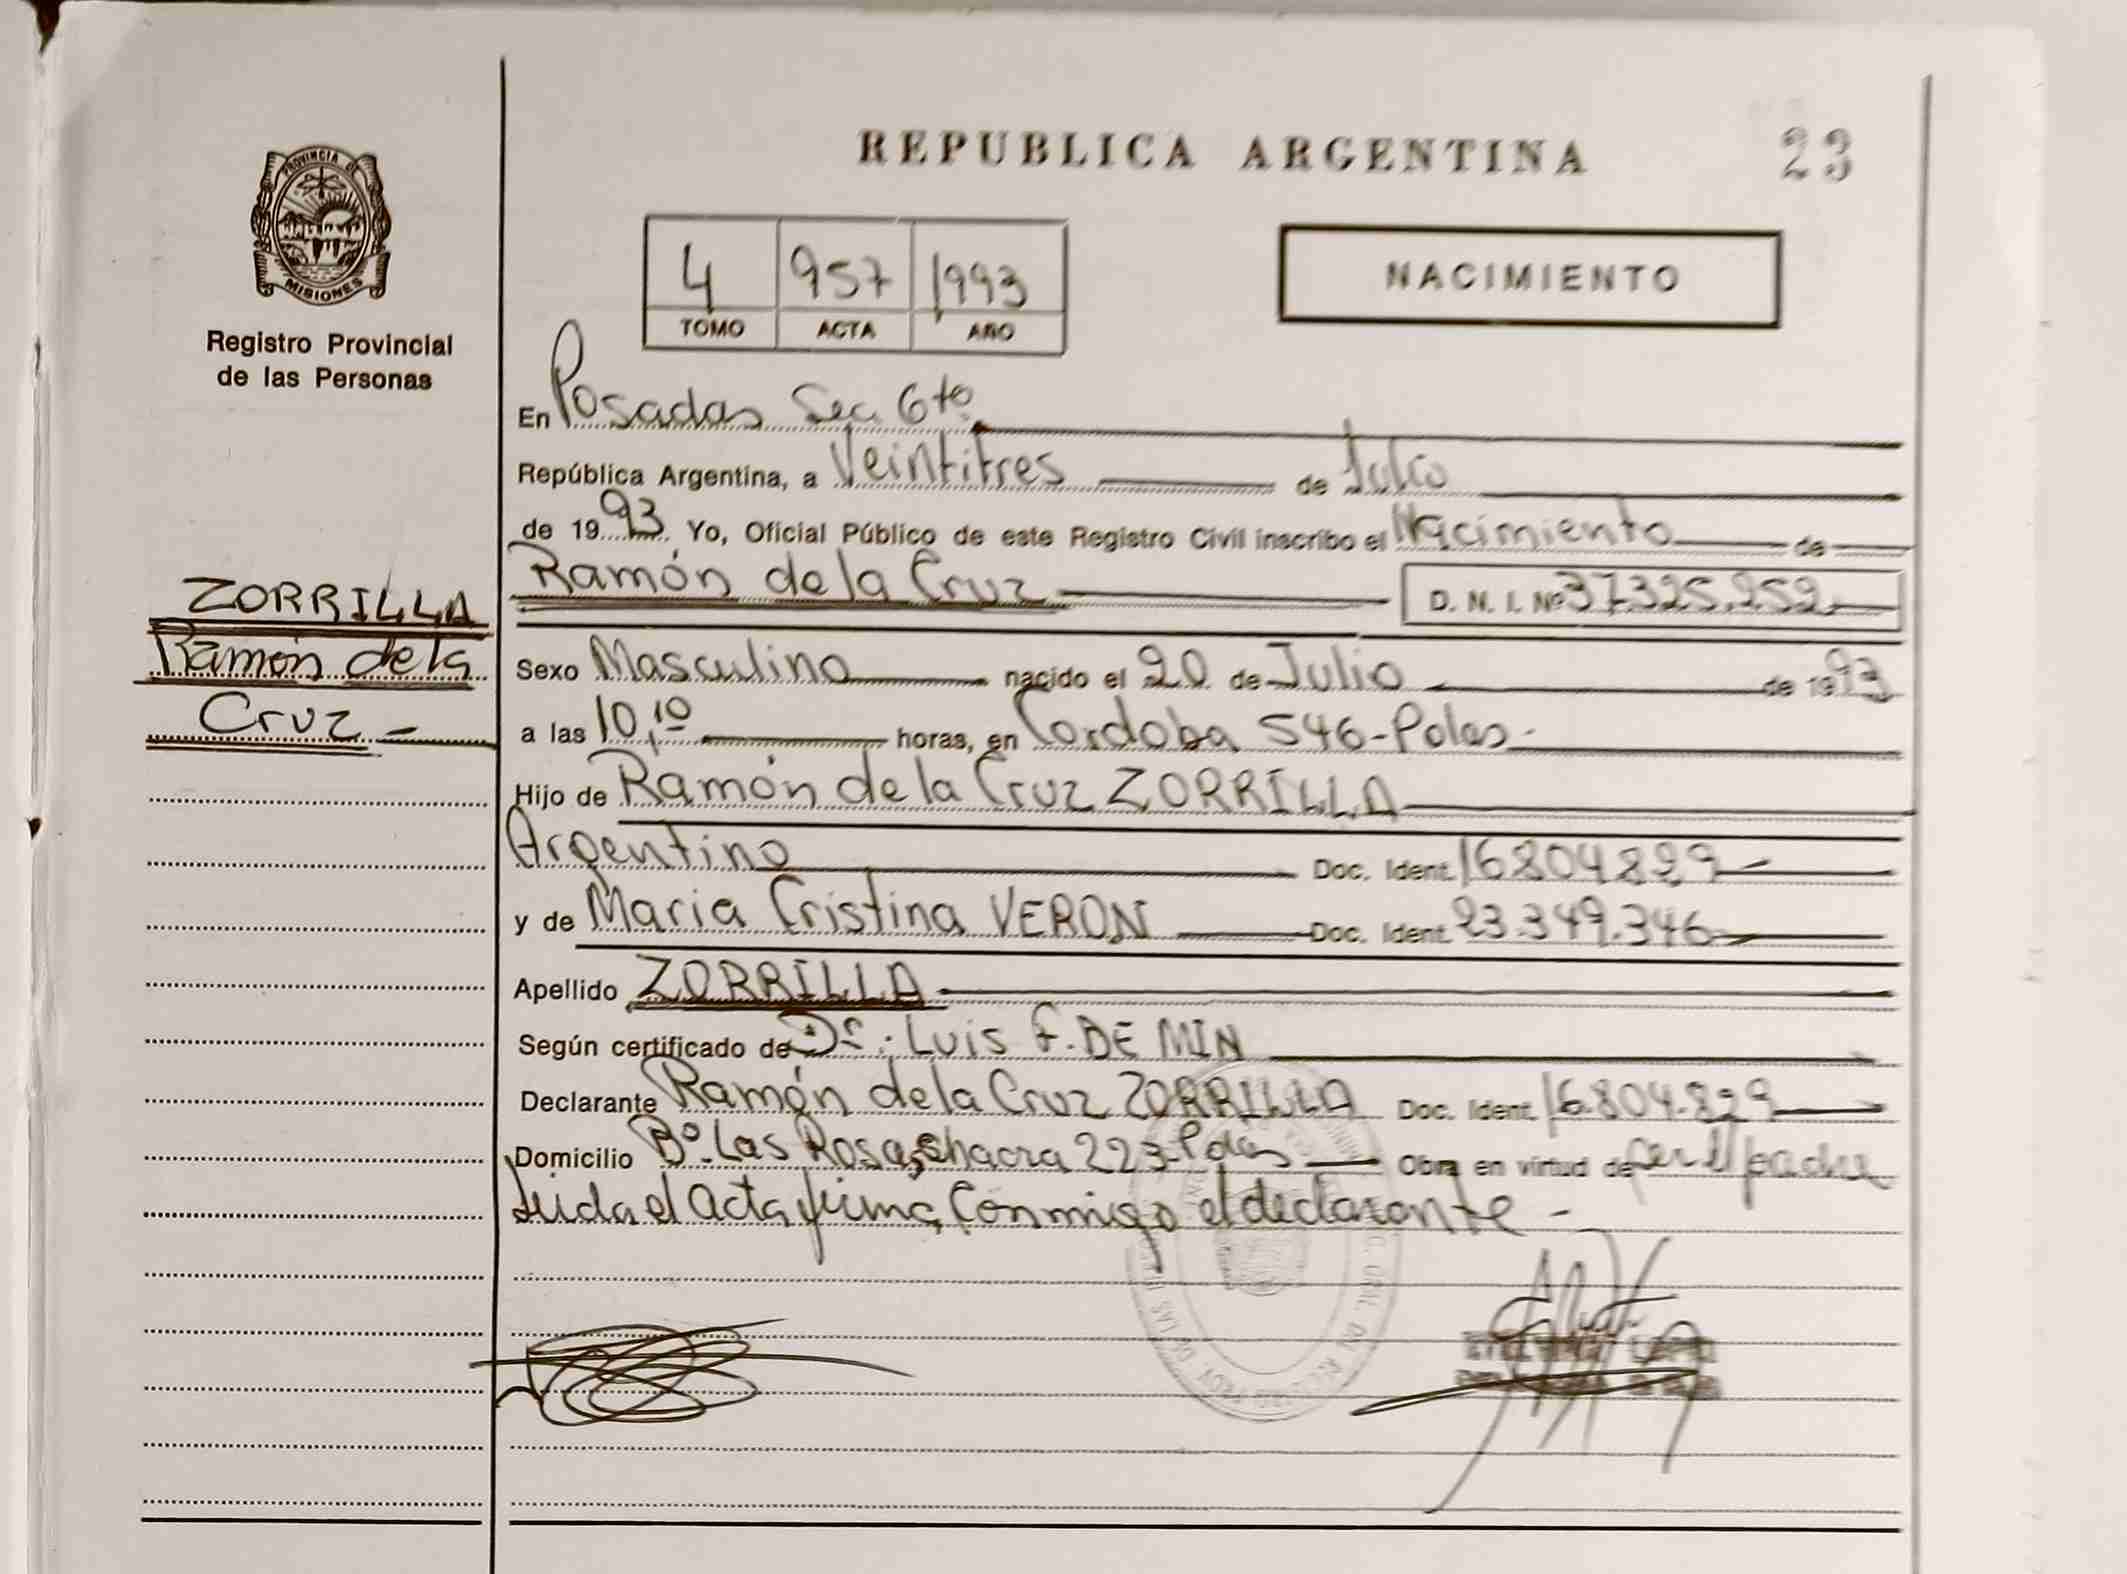 REPUBLICA ARGENTINA
23
PROVINCIA DE
MISIONES
Registro Provincial
de las Personas
4 957 1993
TOMO ACTA AÑO
NACIMIENTO
En Posadas Sec 6ta
República Argentina, a Veintitres de Julio
de 1993. Yo, Oficial Público de este Registro Civil inscribo el Nacimiento de
ZORRILLA
Ramón de la
Cruz -
Ramón de la Cruz D. N. I. Nº 37.325.252
Sexo Masculino nacido el 20 de Julio de 1993
a las 10,10 horas, en Cordoba 546-Pdas.
Hijo de Ramón de la Cruz ZORRILLA
Argentino Doc. Ident. 16804829-
y de Maria Cristina VERON Doc. Ident. 23.349.346
Apellido ZORRILLA
Según certificado de Dr: Luis F. DE MIN
Declarante Ramón de la Cruz ZORRILLA Doc. Ident. 16.804.829
Domicilio Bº. Las Rosas chacra 223-Pdas Obra en virtud de ser el padre
Leida el acta firma conmigo el declarante -